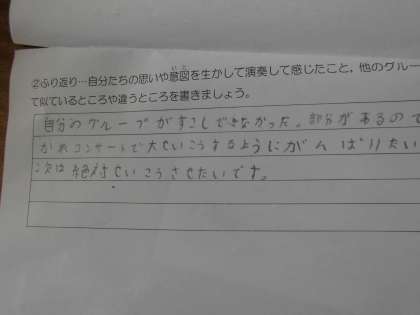 ②ふり返り…自分たちの思いや意図を生かして演奏して感じたこと，他のグルー
て似ているところや違うところを書きましょう。
自分のグループがすこしできなかった。部分があるので
かれコンサートで大せいこうするようにがんばりたい
次は絶対せいこうさせたいです。